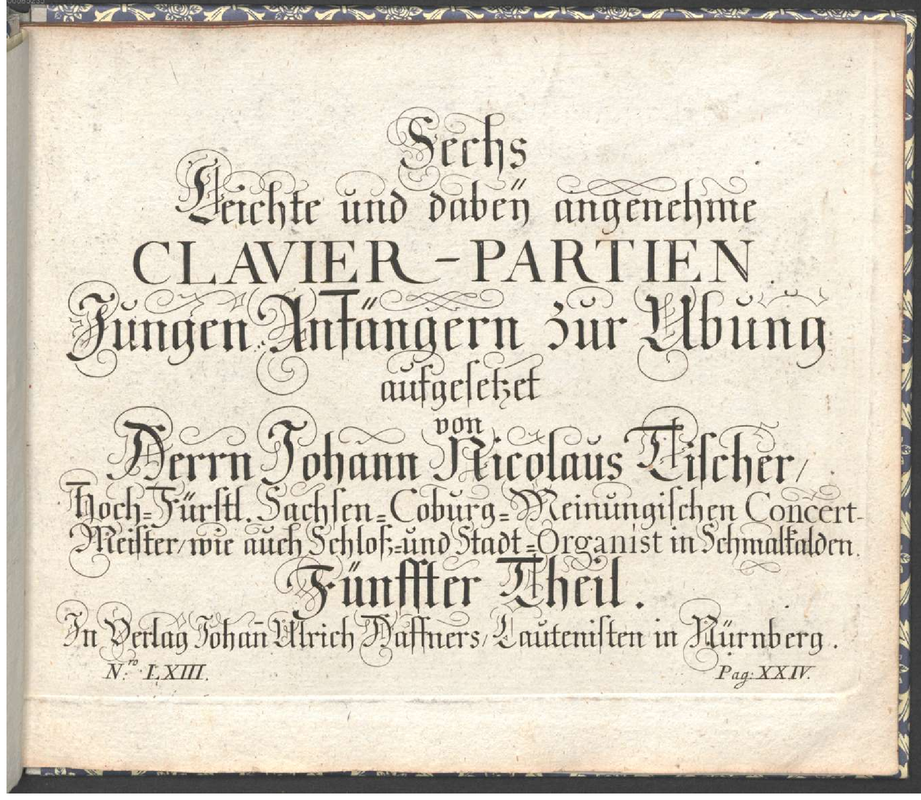 Sechs
Leichte und dabeÿ angenehme
CLAVIER-PARTIEN
Jungen Anfängern zur Ubung
aufgesetzet
von
Herrn Johann Nicolaus Tischer,
Hoch-Fürstl. Sachsen-Coburg-Meinungischen Concert-
Meister, wie auch Schloß-und Stadt-Organist in Schmalkalden.
Fünffter Theil.
In Verlag Johañ Ulrich Haffners, Lautenisten in Nürnberg.
N.ro LXIII.
Pag: XXIV.